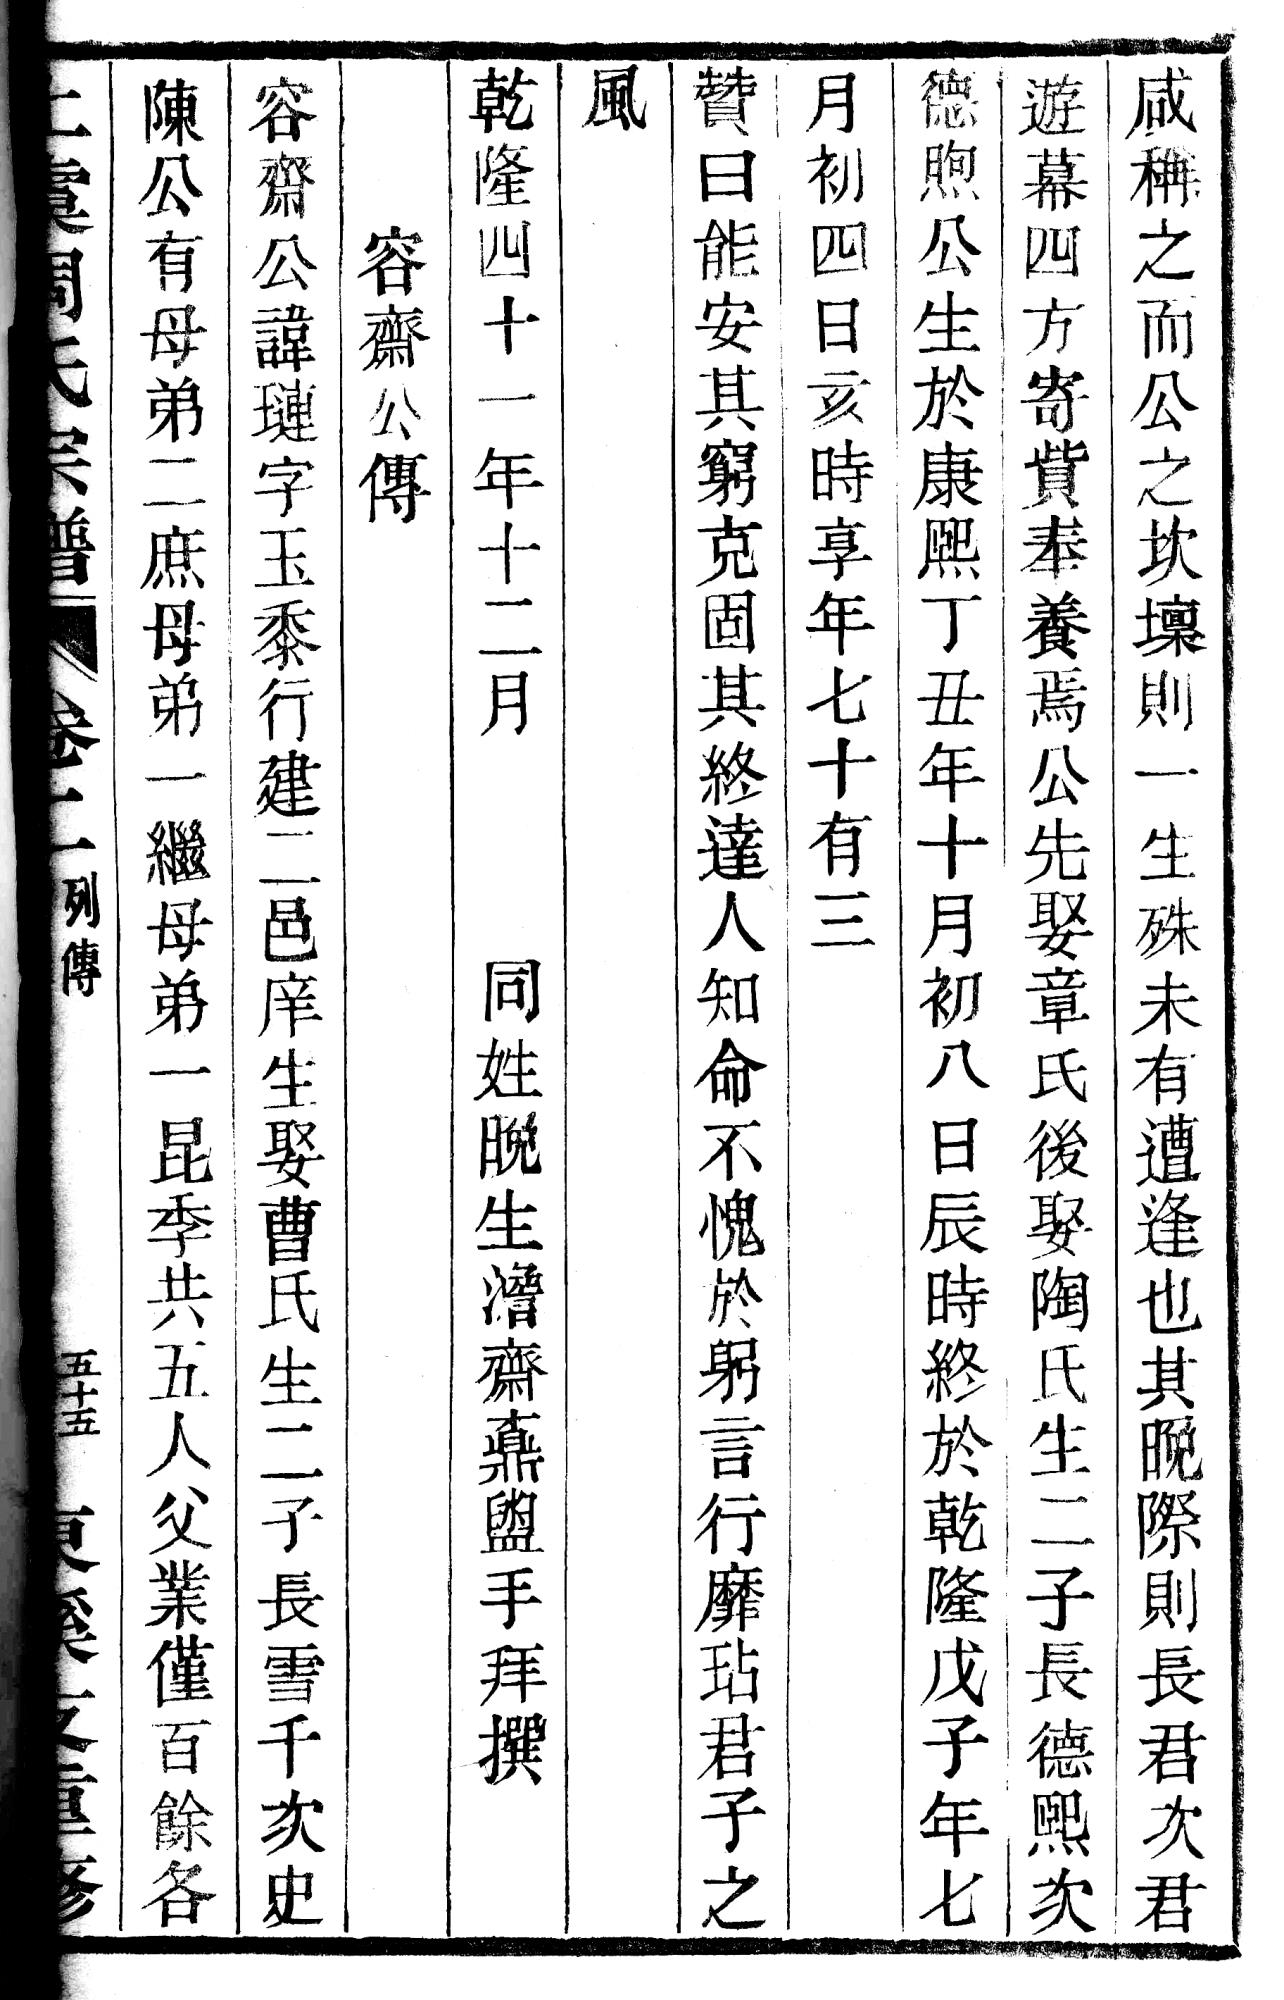 咸稱之而公之坎壈則一生殊未有遭逢也其晚際則長君次君
遊幕四方寄貲奉養焉公先娶章氏後娶陶氏生二子長德熙次
德煦公生於康熙丁丑年十月初八日辰時終於乾隆戊子年七
月初四日亥時享年七十有三
贊曰能安其窮克固其終達人知命不愧於躬言行靡玷君子之
風
乾隆四十一年十二月 同姓晚生澹齋鼒盥手拜撰
容齋公傳
容齋公諱璉字玉黍行建二邑庠生娶曹氏生二子長雪千次史
陳公有母弟二庶母弟一繼母弟一昆季共五人父業僅百餘各
上虞周氏宗譜 卷十一 列傳 五十五 東溪支重修